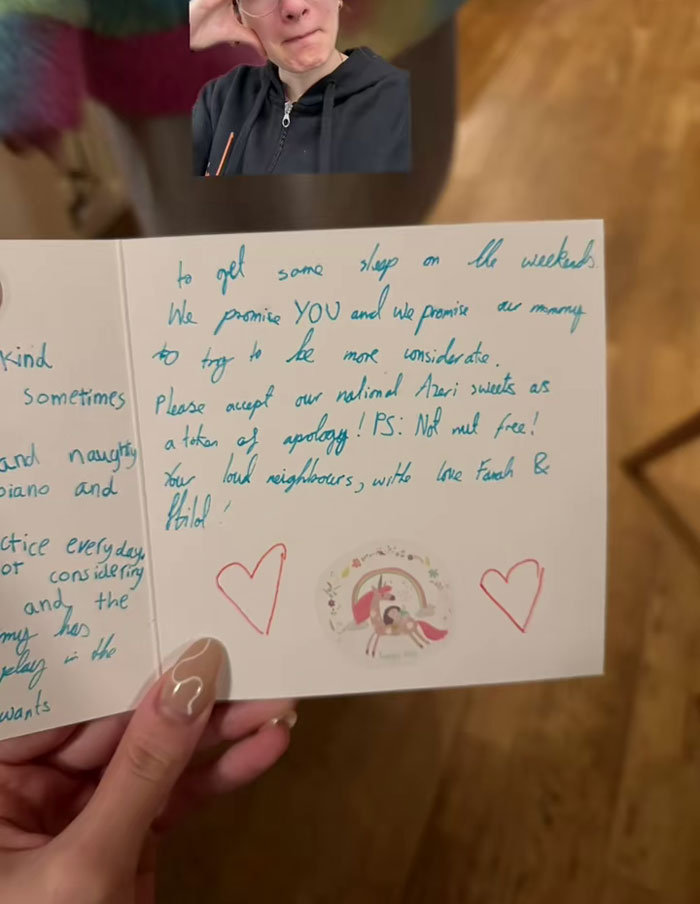 kind
sometimes
and naughty
piano and
ctice everyday
or considering
and the
my has
play in the
wants
to get some sleep on the weekends.
We promise YOU and we promise our mommy
to try to be more considerate.
Please accept our national Azeri sweets as
a token of apology! PS: Not nut free!
Your loud neighbours, with love Farah &